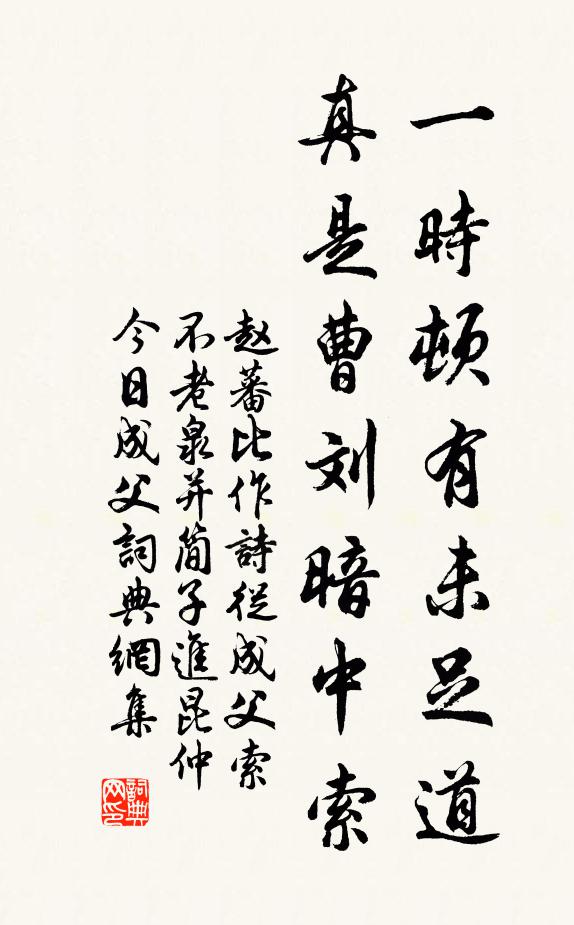 一時頓有未足道
真是曹刘暗中索
赵蕃比作詩從成父索
不老泉并简子進昆仲
今日成父詞典網集
詞典网印